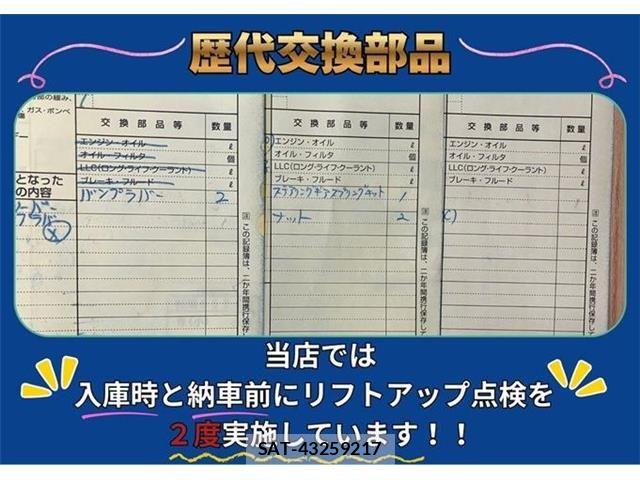 歴代交換部品
部の組み、
ガス・ボンベ
となった
の内容
交換部品等 数量
エンジン・オイル ℓ
オイル・フィルタ 個
LLC(ロング・ライフ・クーラント) ℓ
ブレーキ・フルード ℓ
バンプラバー 2
交換部品等 数量
エンジン・オイル ℓ
オイル・フィルタ 個
LLC(ロング・ライフ・クーラント) ℓ
ブレーキ・フルード ℓ
ステアリングギアスプリングキット 1
ナット 2
注 この記録簿は、二か年間携行保存して
交換部品等 数量
エンジン・オイル ℓ
オイル・フィルタ 個
LLC(ロング・ライフ・クーラント) ℓ
ブレーキ・フルード ℓ
注 この記録簿は、二か年間携行保存し
当店では
入庫時と納車前にリフトアップ点検を
２度実施しています！！
SAT-43259217